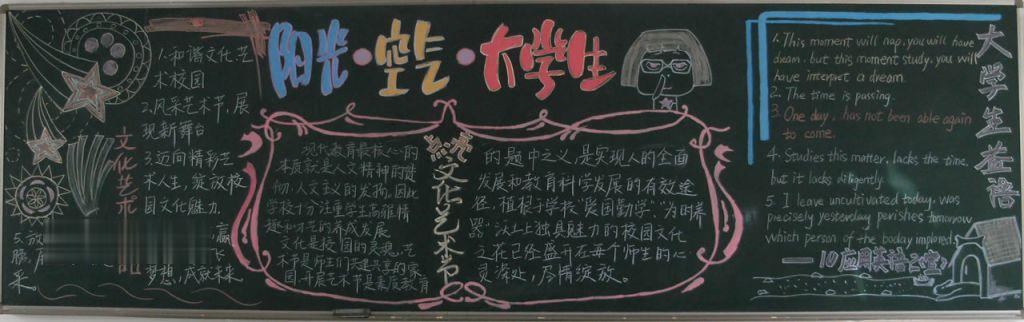 阳光·空气·大学生
1.和谐文化艺
术校园
2.风采艺术节,展
现新舞台
3.迈向精彩艺
术人生,绽放校
园文化魅力.
5.放
赢
胜,
梦想,成就未来
采。
文化艺术
现代教育最核心的
本质就是人文精神的贯
彻,人文主义的发扬。因此
学校十分注重学生高雅情
趣和才艺的养成发展
文化是校园的灵魂,艺
术是师生们共建共享的家
园.开展艺术节是素质教育
文化艺术节
的题中之义,是实现人的全面
发展和教育科学发展的有效途
径,植根于学校"爱国勤学"
独具魅力的校园文化
之花已经盛开在每个师生的心
灵深处,尽情绽放。
1. This moment will nap, you will have
dream. but this moment study, you will
have interpret a dream.
2. The time is passing.
3. One day, has not been able again
to come.
4. Studies this matter, lacks the time,
but it lacks diligently
5. I leave uncultivated today, was
precisely yesterday perishes tomorrow
which person of the boday implored.
——10应用英语2
大学生
语